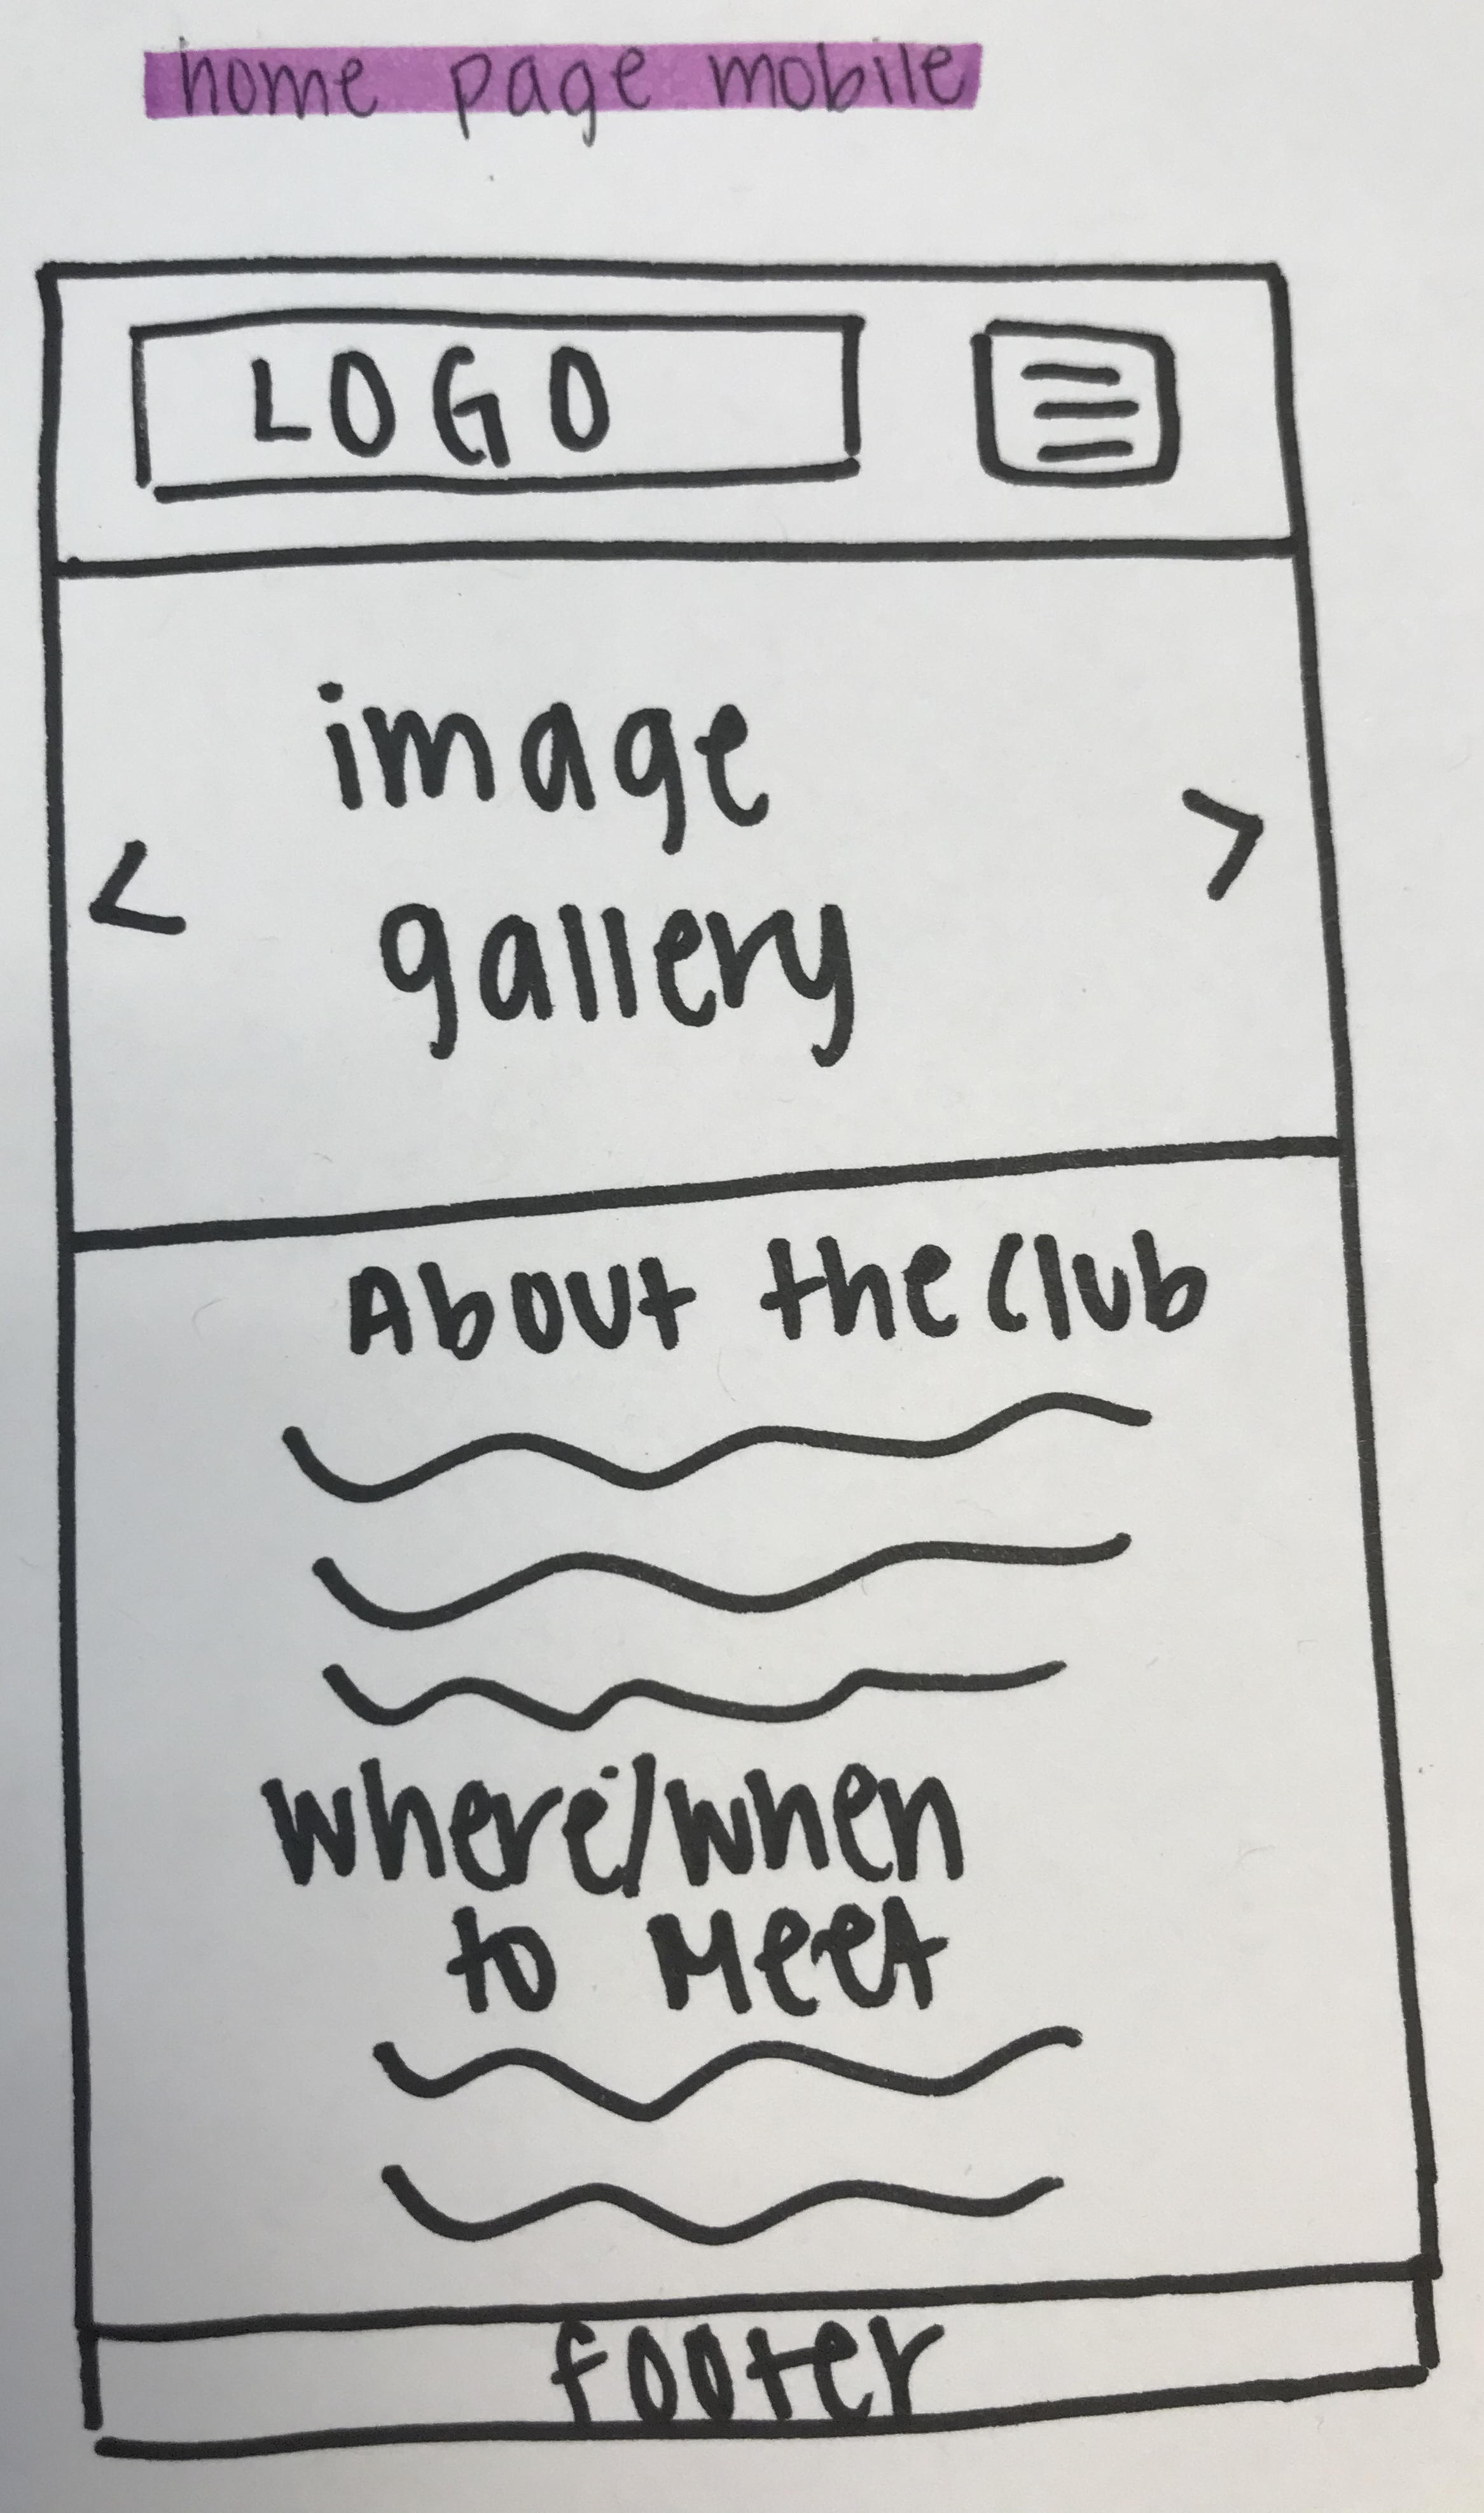 home page mobile
LOGO
image
< >
gallery
About the Club
where/when
to Meet
footer